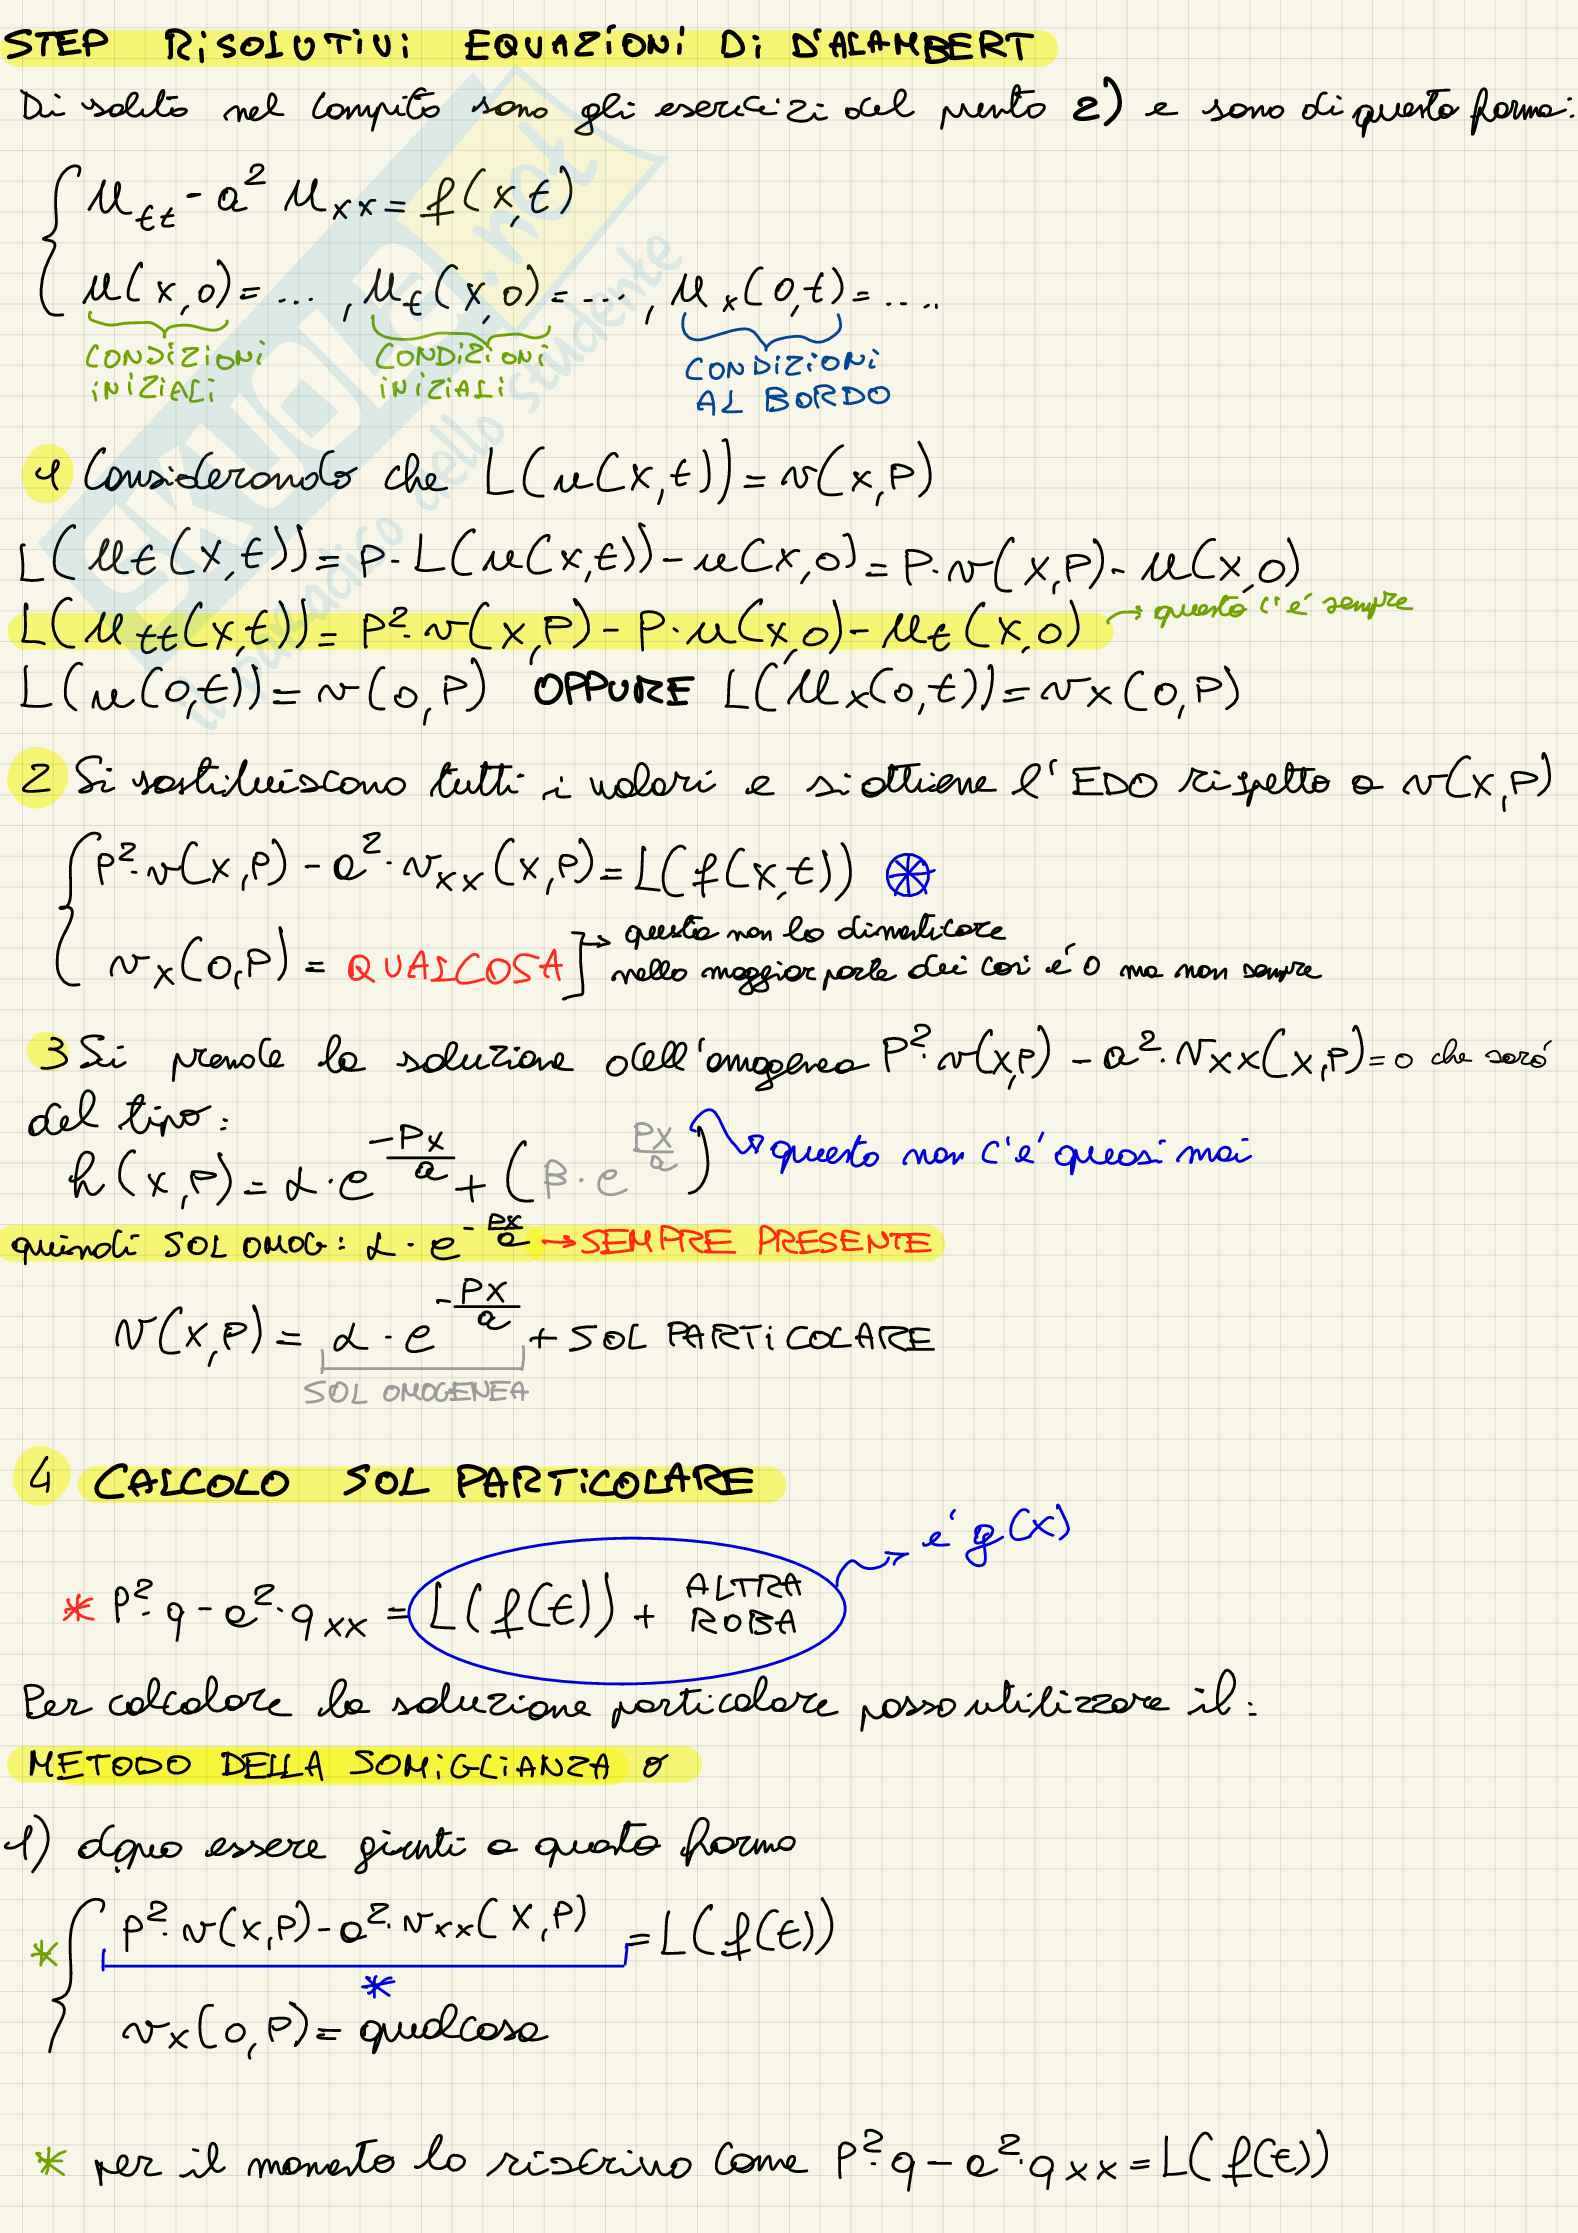 STEP RISOLUTIVI EQUAZIONI DI D'ALAMBERT
Di solito nel compito sono gli esercizi del punto 2) e sono di questa forma:
u_tt - a² u_xx = f(x,t)
u(x,0) = ... , u_t(x,0) = ... , u_x(0,t) = ....
CONDIZIONI INIZIALI CONDIZIONI INIZIALI CONDIZIONI AL BORDO
1 Considerando che L(u(x,t)) = v(x,P)
L(u_t(x,t)) = P · L(u(x,t)) - u(x,0) = P · v(x,P) - u(x,0)
L(u_tt(x,t)) = P² · v(x,P) - P · u(x,0) - u_t(x,0) → questo c'é sempre
L(u(0,t)) = v(0,P) OPPURE L(u_x(0,t)) = v_x(0,P)
2 Si sostituiscono tutti i valori e si ottiene l'EDO rispetto a v(x,P)
P² · v(x,P) - a² · v_xx(x,P) = L(f(x,t)) ⊛
v_x(0,P) = QUALCOSA ] → questa non lo dimenticare
nella maggior parte dei casi é 0 ma non sempre
3 Si prende la soluzione dell'omogenea P² · v(x,P) - a² · v_xx(x,P) = 0 che sará
del tipo:
h(x,P) = α · e^(-Px/a) + (β · e^(Px/a)) → questo non c'é quasi mai
quindi SOL OMOG: α · e^(-Px/a) → SEMPRE PRESENTE
v(x,P) = α · e^(-Px/a) + SOL PARTICOLARE
SOL OMOGENEA
4 CALCOLO SOL PARTICOLARE
é g(x)
* P² · q - a² · q_xx = L(f(t)) + ALTRA ROBA
Per calcolare la soluzione particolare posso utilizzare il:
METODO DELLA SOMIGLIANZA o
1) dopo essere giunti a questa forma
* P² · v(x,P) - a² · v_xx(x,P) = L(f(t))
*
v_x(0,P) = qualcosa
* per il momento lo riscrivo come P² · q - a² · q_xx = L(f(t))
SKUOLA.net
il paradiso dello studente